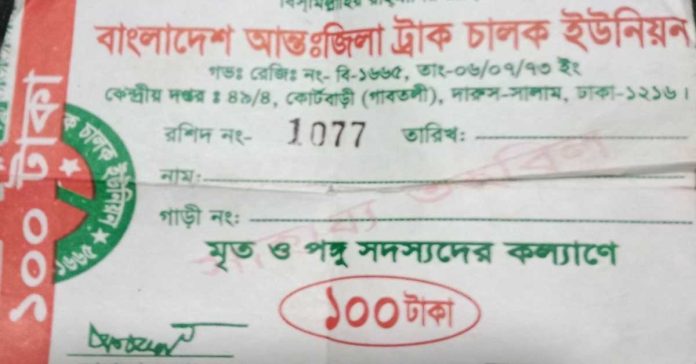 বাংলাদেশ আন্তঃজিলা ট্রাক চালক ইউনিয়ন
গভঃ রেজিঃ নং- বি-১৬৬৫, তাং-০৬/০৭/৭৩ ইং
কেন্দ্রীয় দপ্তর ঃ ৪৯/৪, কোর্টবাড়ী (গাবতলী), দারুস-সালাম, ঢাকা-১২১৬।
রশিদ নং- 1077 তারিখঃ
নামঃ
গাড়ী নংঃ
মৃত ও পঙ্গু সদস্যদের কল্যাণে
১০০ টাকা
১০০ টাকা
ক চালক ইউনিয়ন
১৬৬৫